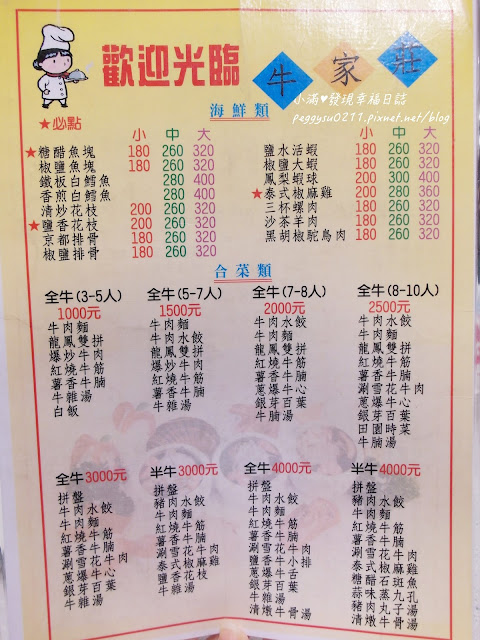 歡迎光臨 牛家莊
小滿♥發現幸福日誌
peggysu0211.pixnet.net/blog
海鮮類
★必點
小 中 大
★糖醋魚塊 180 260 320
椒鹽魚塊 180 260 320
鐵板白鱈魚 280 400
香煎白鱈魚 280 400
清炒花枝 200 260 320
★鹽香花枝 200 260 320
京都排骨 180 260 320
椒鹽排骨 180 260 320
小 中 大
鹽水活蝦 180 260 320
椒鹽大蝦 180 260 320
鳳梨蝦球 200 300 400
★泰式椒麻雞 200 280 360
三杯螺肉 180 260 320
沙茶羊肉 180 260 320
黑胡椒鴕鳥肉 180 260 320
合菜類
全牛(3-5人)
1000元
牛肉麵
牛肉湯
龍鳳雙拼
爆炒牛肉
紅燒牛筋
薯香牛腩
牛雜湯
白飯
全牛(5-7人)
1500元
牛肉麵
牛肉水餃
龍鳳雙拼
爆炒牛肉
紅燒牛筋
薯香牛腩
牛雜湯
全牛(7-8人)
2000元
牛肉水餃
牛肉麵
龍鳳雙拼
紅燒牛筋
薯香牛腩
蔥爆牛心
銀芽百葉
牛腩湯
全牛(8-10人)
2500元
牛肉水餃
牛肉麵
龍鳳雙拼
紅燒牛筋
薯香牛腩
涮雪花牛肉
蔥爆牛心
銀芽百葉
田園時蔬
牛腩湯
全牛3000元
拼盤
牛肉水餃
牛肉麵
紅燒牛筋
薯香牛腩
涮雪花牛肉
蔥爆牛心
銀芽百葉
牛雜湯
半牛3000元
拼盤
豬肉水餃
牛肉麵
紅燒牛筋
薯香牛腩
涮雪花牛肉
泰式椒麻雞
鹽香花枝
牛雜湯
全牛4000元
拼盤
牛肉水餃
牛肉麵
紅燒牛筋
薯香牛腩
半牛4000元
拼盤
豬肉水餃
牛肉麵
紅燒牛筋
薯香牛腩
涮雪花牛肉
泰式椒麻雞